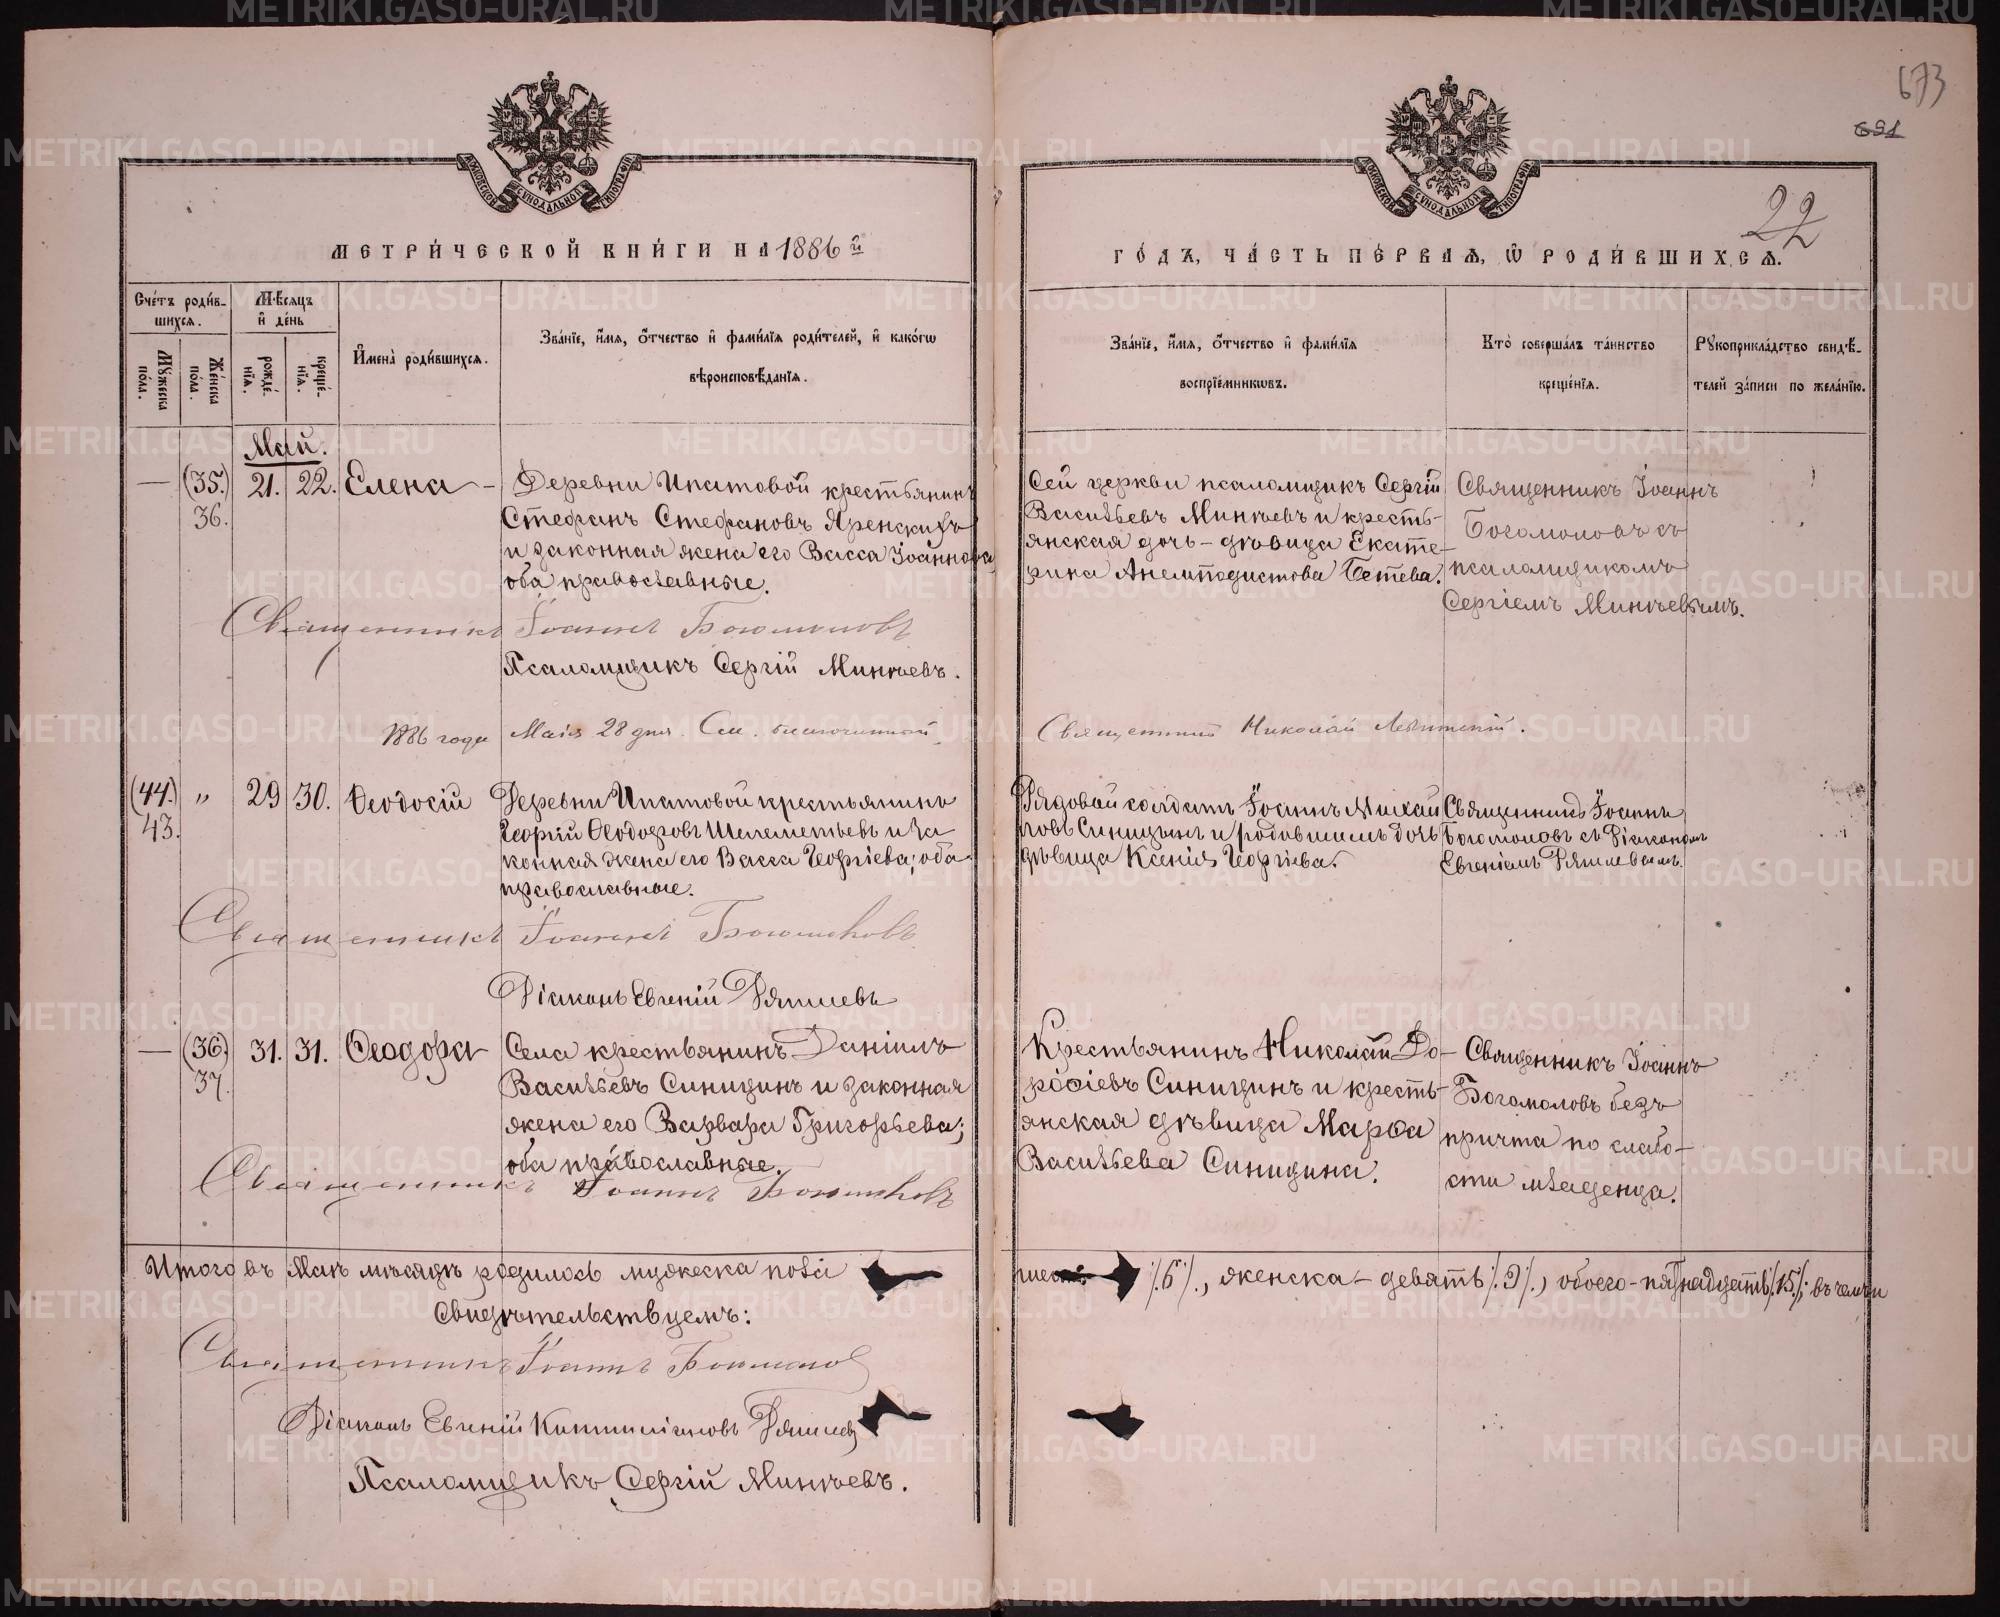 673
691
22
МОСКОВСКОЙ СѴНОДАЛЬНОЙ ТИПОГРАФІИ
МОСКОВСКОЙ СѴНОДАЛЬНОЙ ТИПОГРАФІИ
МЕТРИ́ЧЕСКОЙ КНИ́ГИ НА 1886й
ГО́ДЪ, ЧА́СТЬ ПЕ́РВАѦ, Ѡ РОДИ́ВШИХСѦ.
Сче́тъ роди́в-
шихсѧ.
Мꙋжеска по́ла.
Же́нска по́ла.
Мѣ́сѧцъ
и҆ де́нь
рожде́-
нїѧ.
креще́-
нїѧ.
И҆мена̀ роди́вшихсѧ.
Зва́нїе, и҆́мѧ, ѻ҆́тчество и҆ фами́лїѧ роди́телей, и҆ како́гѡ
вѣроисповѣ́данїѧ.
Зва́нїе, и҆́мѧ, ѻ҆́тчество и҆ фами́лїѧ
воспрїе́мникѡвъ.
Кто̀ соверша́лъ та́инство
креще́нїѧ.
Рꙋкоприкла́дство свидѣ́-
телей за́писи по жела́нїю.
Май.
— (35.) 36. 21. 22. Елена —
Деревни Ипатовой крестьянинъ
Стефанъ Стефановъ Яренскихъ
и законная жена его Васса Іоаннова
оба православные.
Сей церкви псаломщикъ Сергій
Васильевъ Минѣевъ и кресть-
янская дочь - дѣвица Екате-
рина Анемподистова Бетева.
Священникъ Іоаннъ
Богомоловъ съ
псаломщикомъ
Сергіемъ Минѣевымъ.
Священникъ Іоаннъ Богомоловъ
Псаломщикъ Сергій Минѣевъ.
1886 года Маія 28 дня. См. благочинный
Священникъ Николай Левитскій.
(44.) 43. „ 29 30. Ѳеодосій
Деревни Ипатовой крестьянинъ
Георгій Ѳеодоровъ Шелементьевъ и за
конная жена его Васса Георгіева; оба
православные.
Рядовой солдатъ Іоаннъ Михай
ловъ Синицынъ и родившимъ дочь
дѣвица Ксенія Георгіева.
Священникъ Іоаннъ
Богомоловъ съ Діакономъ
Евгеніемъ Ряпшевымъ.
Священникъ Іоаннъ Богомоловъ.
Діаконъ Евгеній Ряпшевъ
— (36) 37. 31. 31. Ѳеодора
Села крестьянинъ Даніилъ
Васильевъ Синицинъ и законная
жена его Варвара Григорьева;
оба православные.
Крестьянинъ Николай До-
роѳіевъ Синицинъ и кресть-
янская дѣвица Марѳа
Васильева Синицина.
Священникъ Іоаннъ
Богомоловъ безъ
причта по слабо-
сти младенца.
Священникъ Іоаннъ Богомоловъ
Итого въ Маѣ мѣсяцѣ родилось мужеска пола
шесть ·/.6/., женска — девять /.9/., обоего - пятнадцать /.15/. въ чемъ и
Свидѣтельствуемъ:
Священникъ Іоаннъ Богомолов
Діаконъ Евгеній Ряпшевъ
Псаломщикъ Сергій Минѣевъ.
METRIKI.GASO-URAL.RU